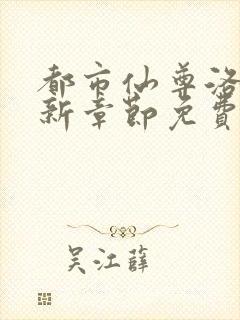 都市仙尊洛
新章節免費
吴江薛